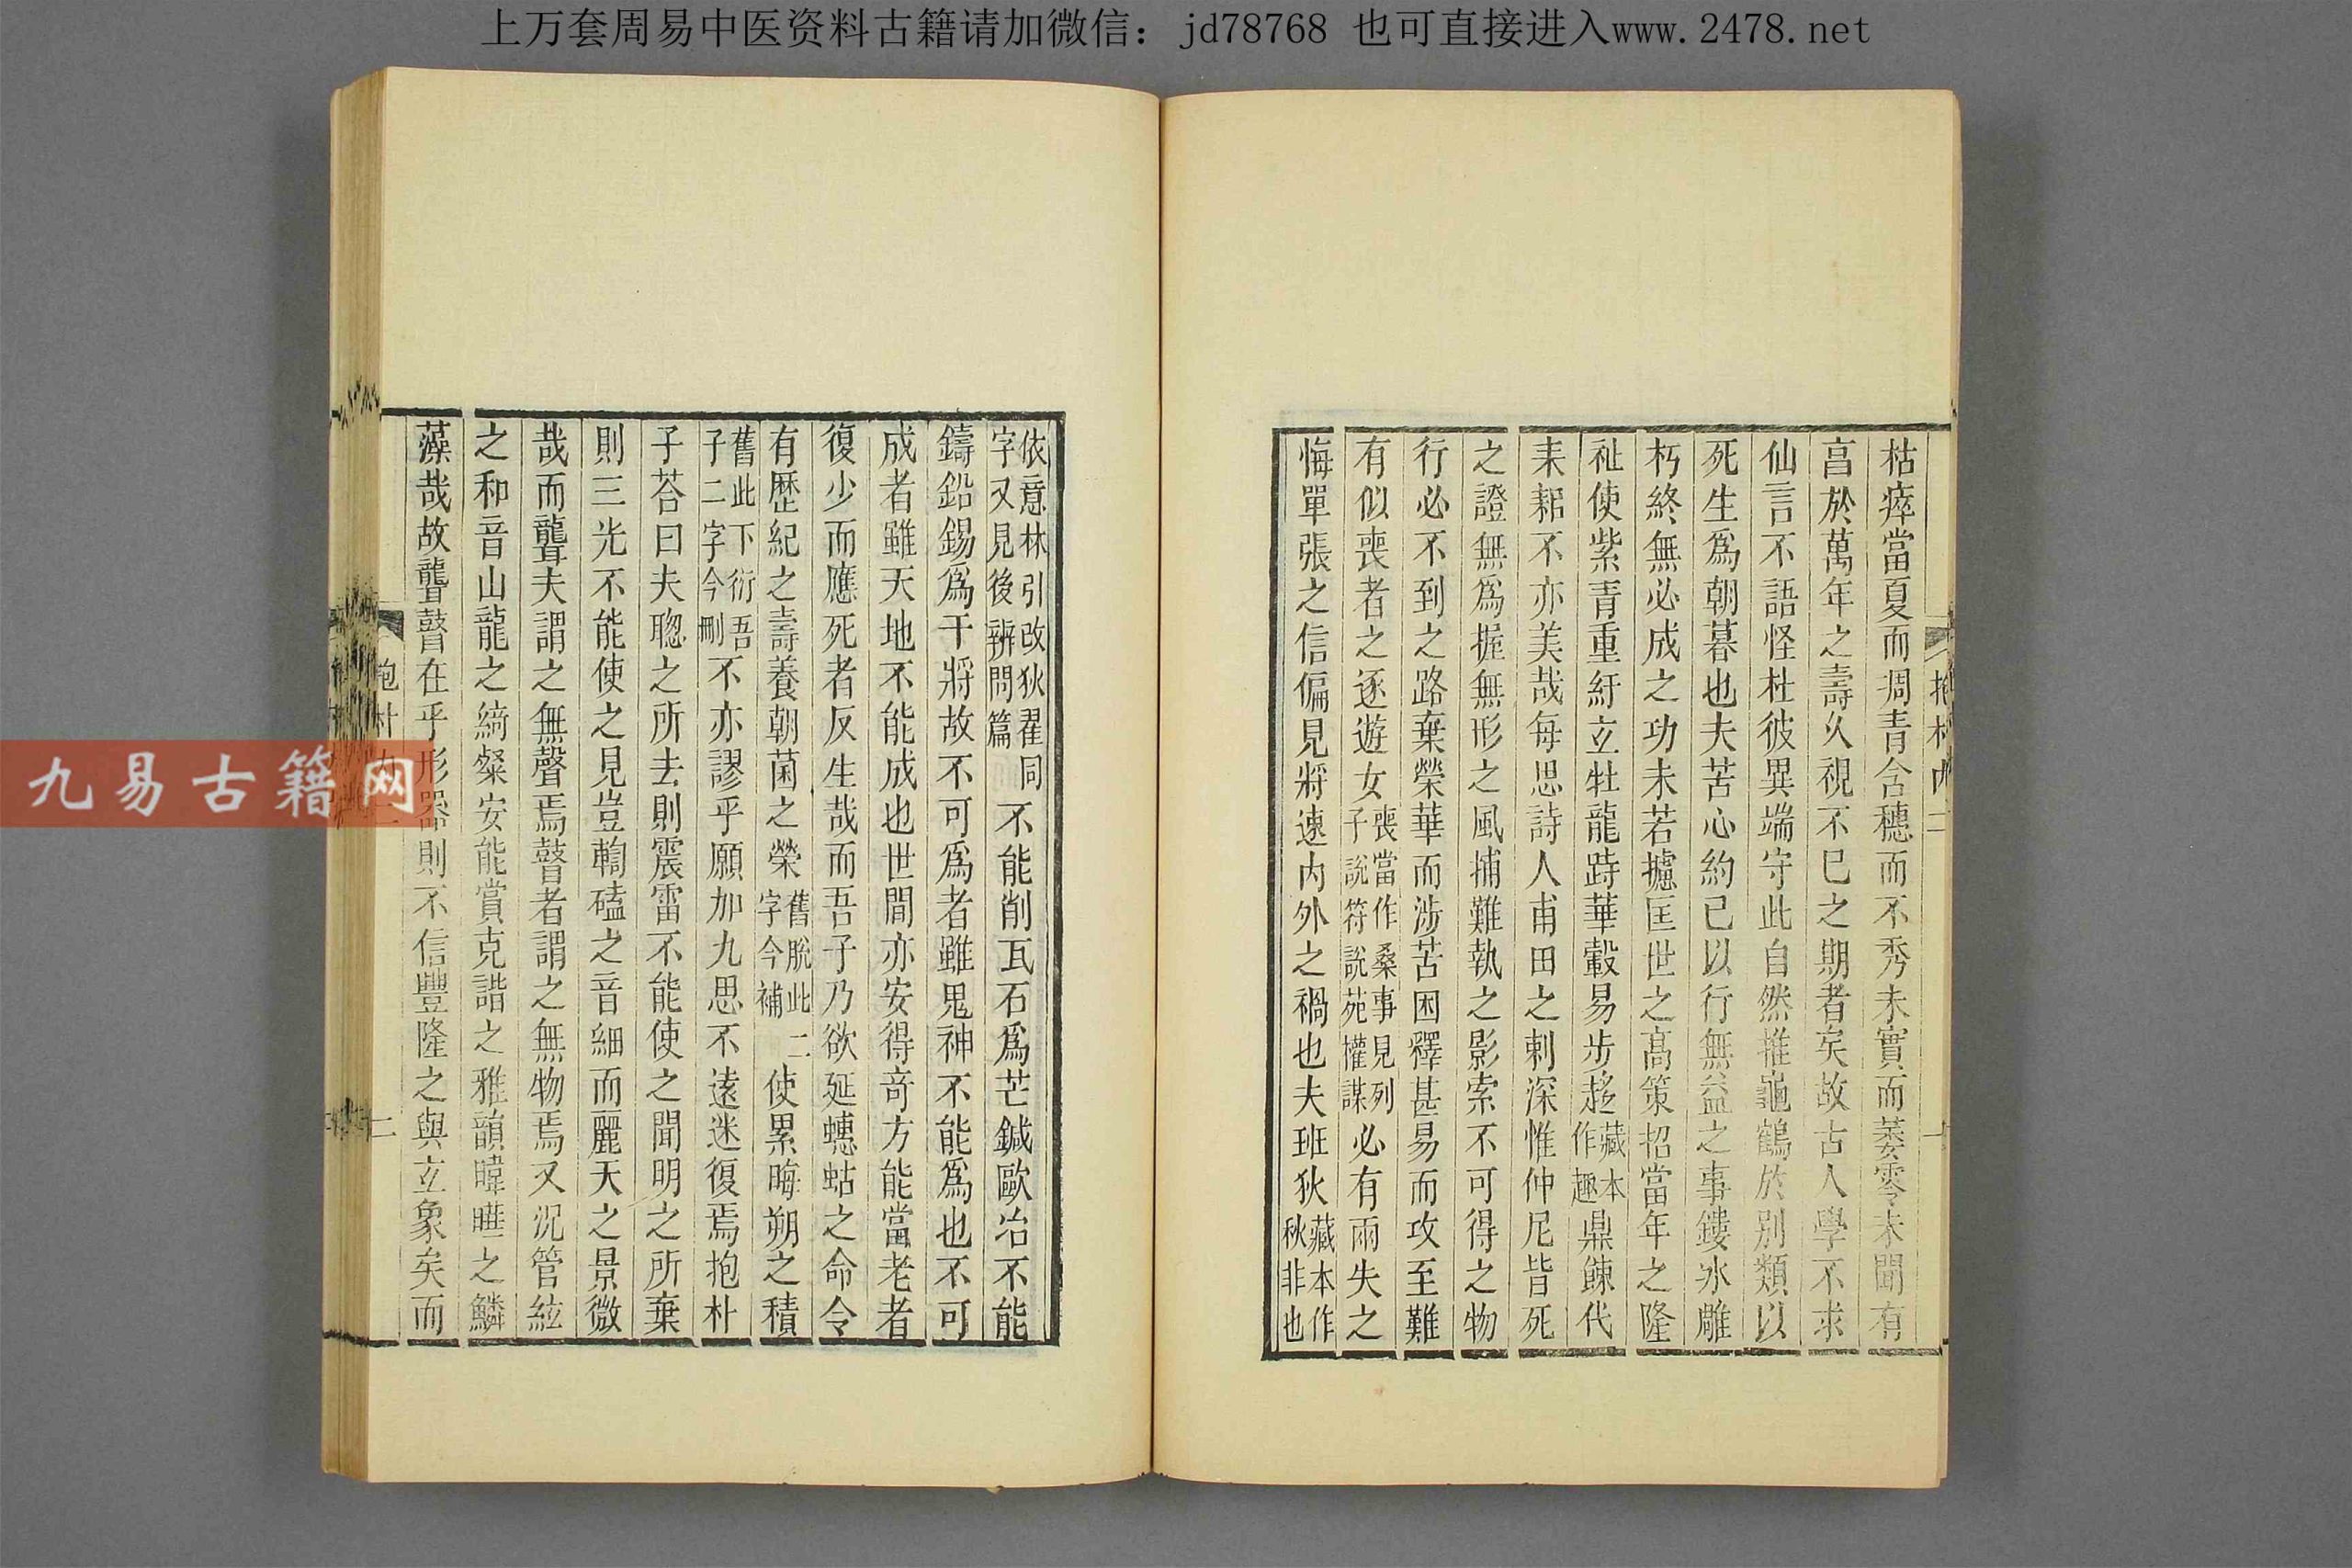 上万套周易中医资料古籍请加微信：jd78768 也可直接进入www.2478.net
枯瘁當夏而凋青含穗而不秀未實而萎零未聞有
亯於萬年之壽久視不已之期者矣故古人學不求
仙言不語怪杜彼異端守此自然推龜鶴於別類以
死生爲朝暮也夫苦心約己以行無益之事鏤冰雕
朽終無必成之功未若攄匡世之高策招當年之隆
祉使紫青重紆立牡龍跱華轂易步趍藏本作趣鼎餗代
耒耜不亦美哉每思詩人甫田之刺深惟仲尼皆死
之證無爲握無形之風捕難執之影索不可得之物
行必不到之路棄榮華而涉苦困釋甚易而攻至難
有似喪者之逐遊女喪當作桑事見列子說符說苑權謀必有兩失之
悔單張之信偏見將速內外之禍也夫班狄藏本作秋非也
依意林引改狄翟同字又見後辨問篇不能削瓦石爲芒鍼歐冶不能
鑄鉛錫爲干將故不可爲者雖鬼神不能爲也不可
成者雖天地不能成也世間亦安得奇方能當老者
復少而應死者反生哉而吾子乃欲延蟪蛄之命令
有歷紀之壽養朝菌之榮舊脫此二字今補使累晦朔之積
舊此下衍吾子二字今刪不亦謬乎願加九思不遠迷復焉抱朴
子荅曰夫聰之所去則震雷不能使之聞明之所棄
則三光不能使之見豈輷磕之音細而麗天之景微
哉而聾夫謂之無聲焉瞽者謂之無物焉又況管絃
之和音山龍之綺粲安能賞克諧之雅韻暐曄之鱗
藻哉故聾瞽在乎形器則不信豐隆之與立象矣而
九易古籍网